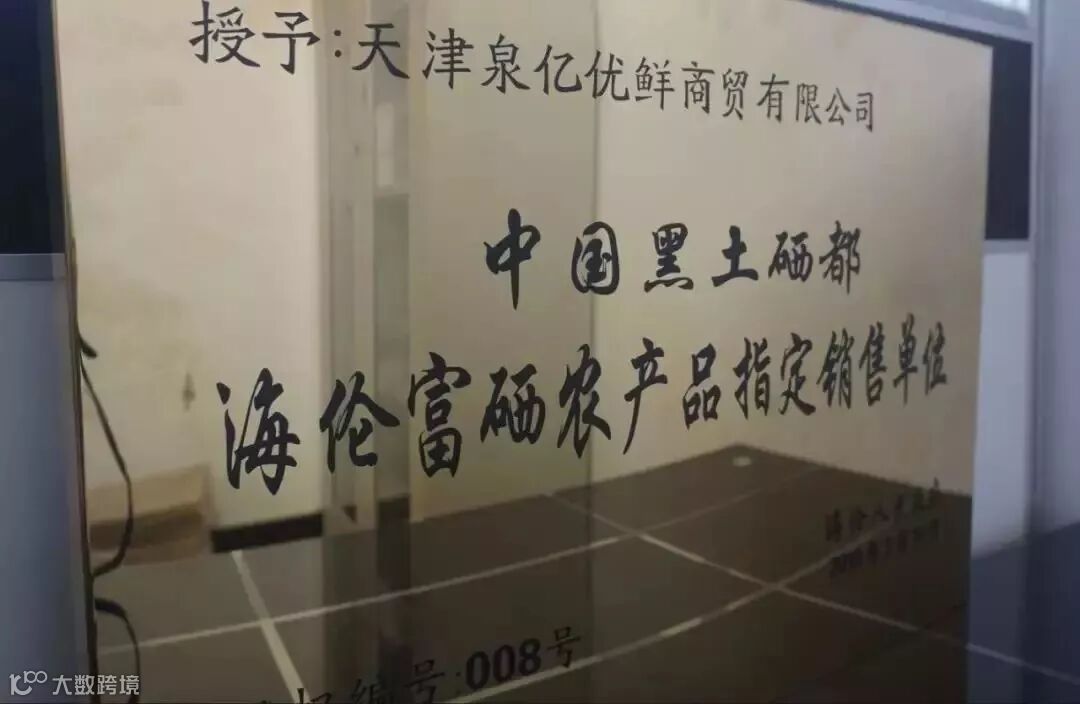 授予:天津泉亿优鲜商贸有限公司
中国黑土硒都
海伦富硒农产品指定销售单位
海伦人民政府
编号:008号
大数跨境